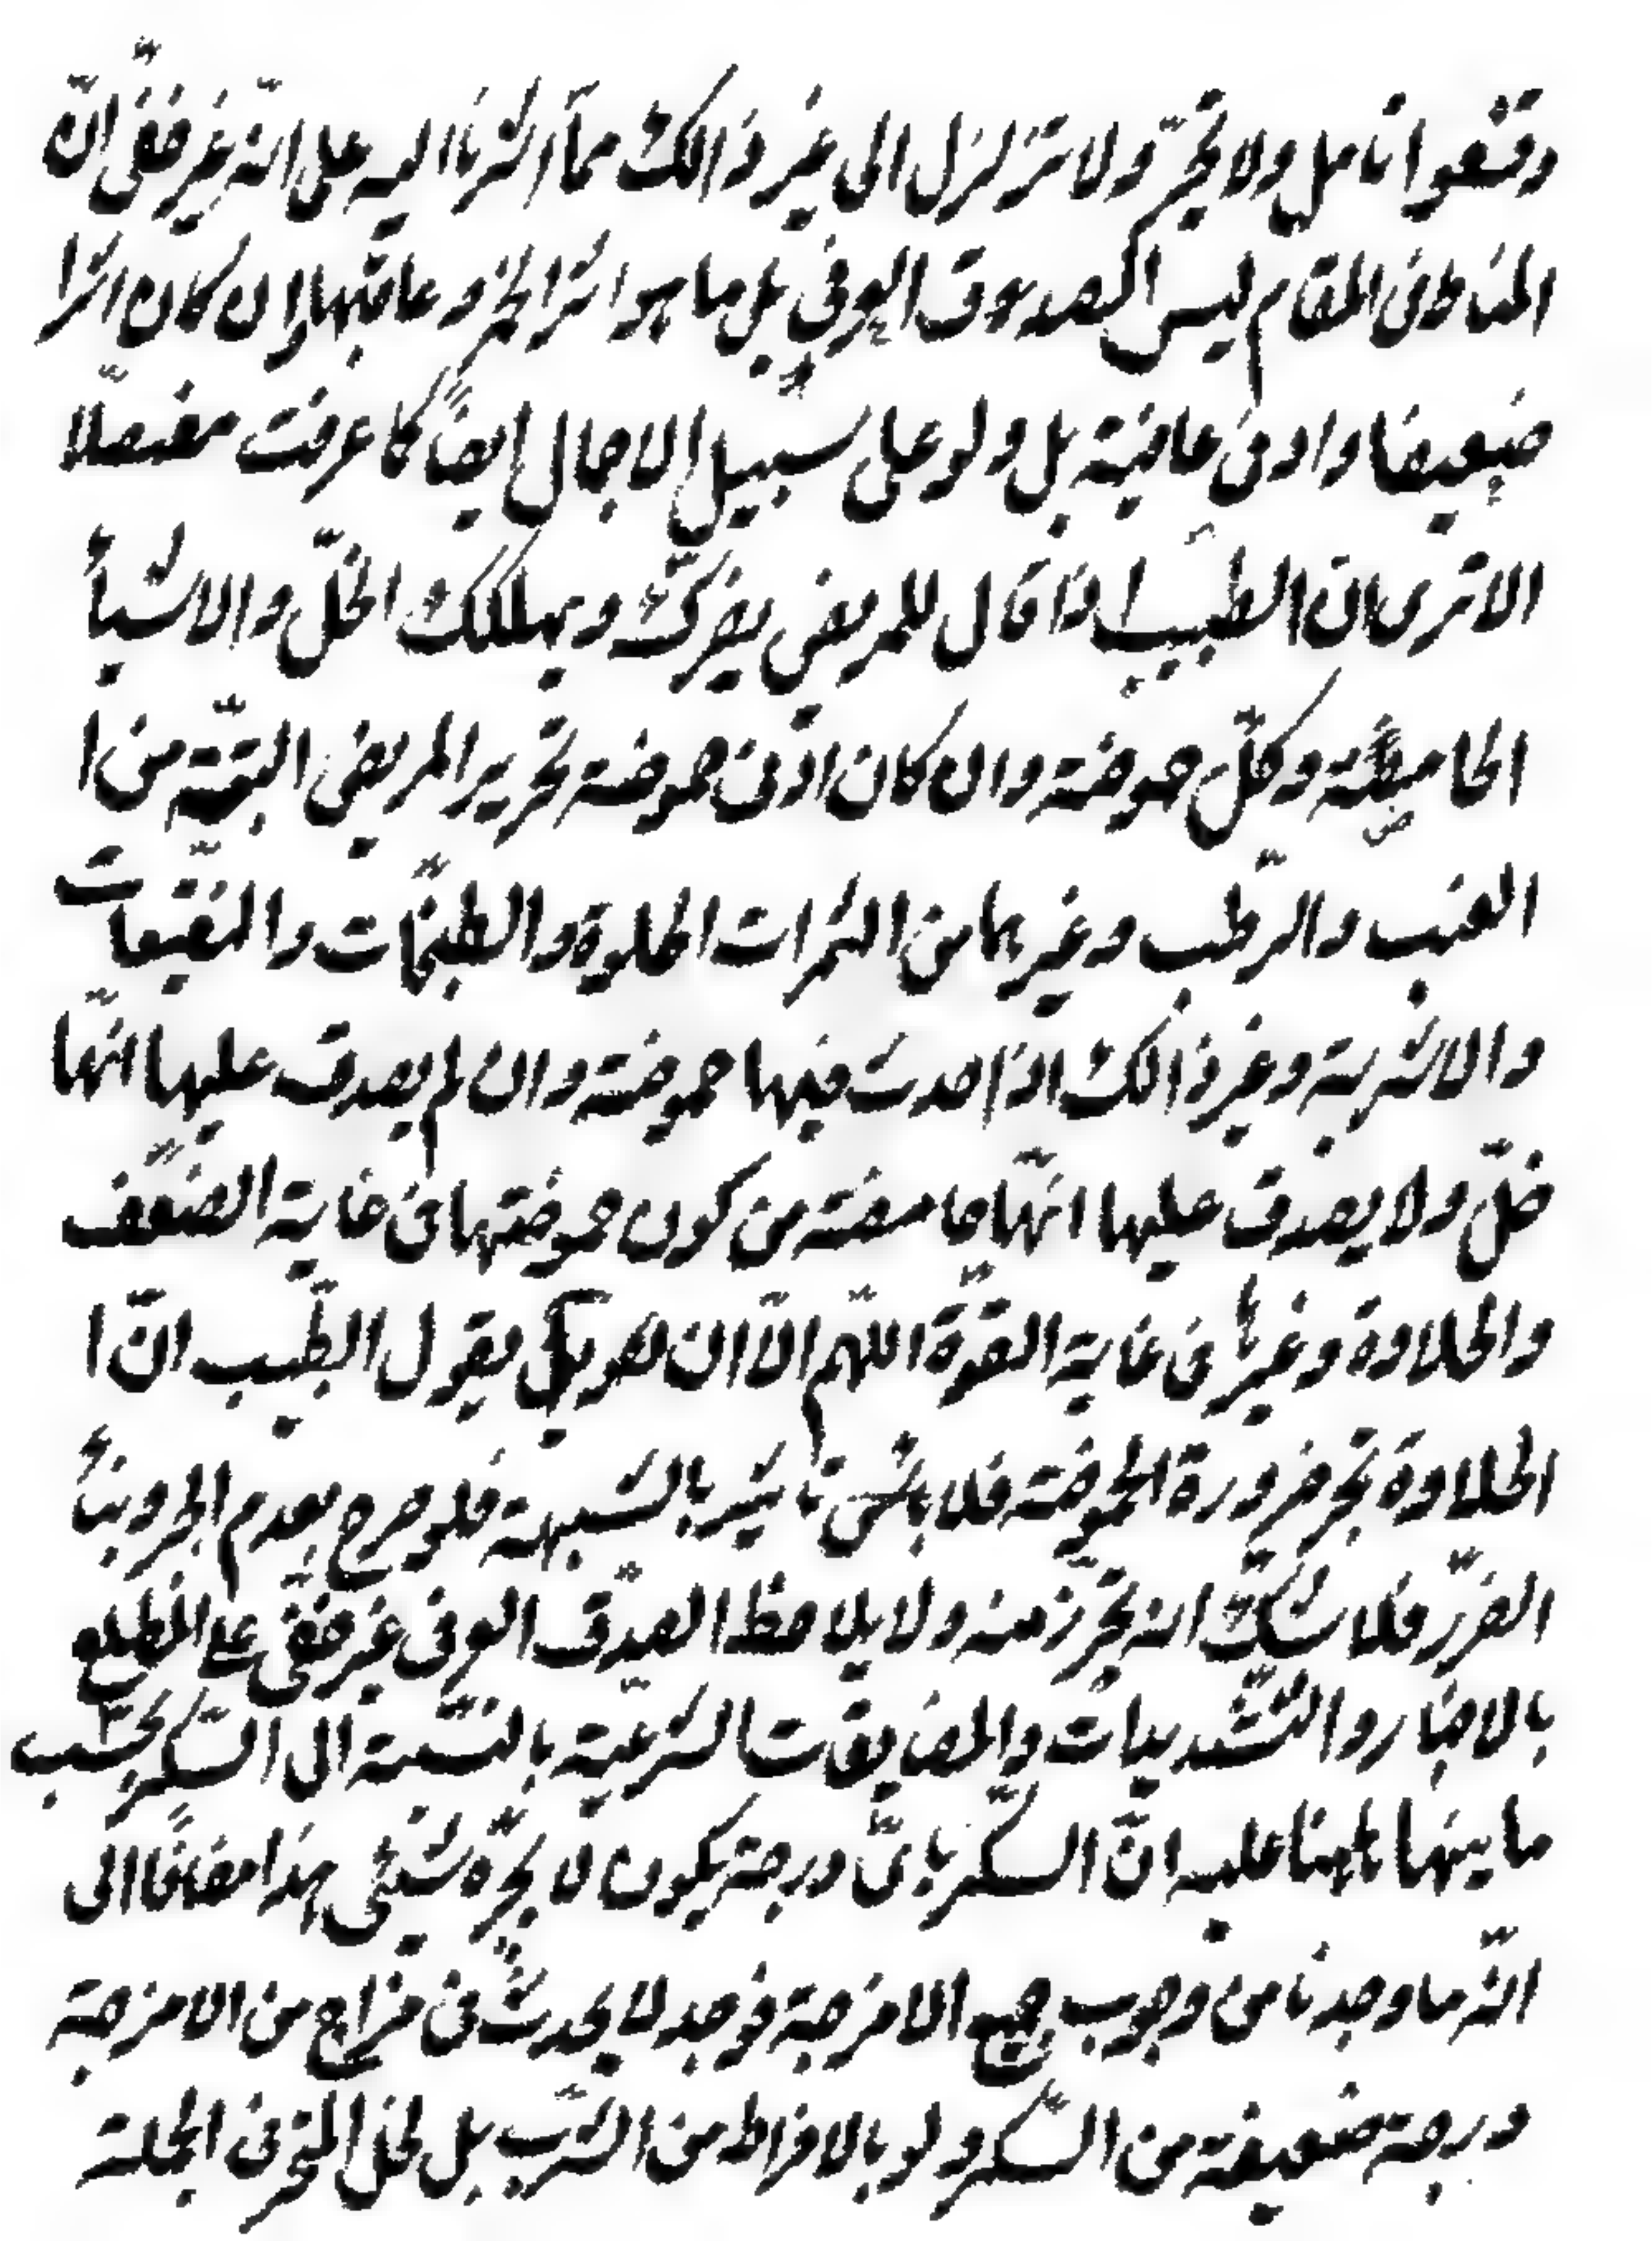 وقنعوا تأمل ولا تجر ولا تزلزل الى غير ذالك مما اشرنا اليه على انّه غير خفى انّ
المناط فى المقام ليس الصدوق العرفى بل ما هو اثر الخمر و عاقبتها وان كان اثرا
ضعيفا وادنى عاقبة بل ولو على سبيل الاجمال ايضًا كما عرفت مفصلا
الا ترى ان الطبيب اذا قال للمريض يضرّك ويهلكك الخلّ والاشياء
الحامضة وكلّ حموضة وان كان ادنى حموضة تحرير المريض البتّة من ا
العنب والرّطب وغيرهما من الثمرات الحلوة والطبخات والنقيعات
والاشربة وغير ذالك اذا حدث فيها حموضة وان لم يصدق عليها انّها
خلّ ولا يصدق عليها انّها حامضة من كون حموضتها فى غاية الضعف
والحلاوة وغيرها فى غاية القوّة اللّهم الّا ان يقول الطّبيب انّ ا
الحلاوة تجر ضرورة الحموضة فلا تأثير بالشبهة فلو صرح بعدم الجر وبناء
الضّرر فلا شكّ انه يتحرّز منه ولا يلاحظ الصدق العرفى غير خفى على المطلع
بالاخبار والتّشديدات والمضايقات الشرعيّة بالنّسبة الى السّكر بحسب
ما بينها عليه انّ السكر باىّ درجة يكون لا يجرّه شيئى هذا مضافًا الى
انّه ما وجدنا من وجوب جميع الامزجة فوجد لا يحدث فى مزاج من الامزجة
درجة ضعيفة من السّكر ولو بالافراط من الشّرب بل لخل المتخر فى الجملة